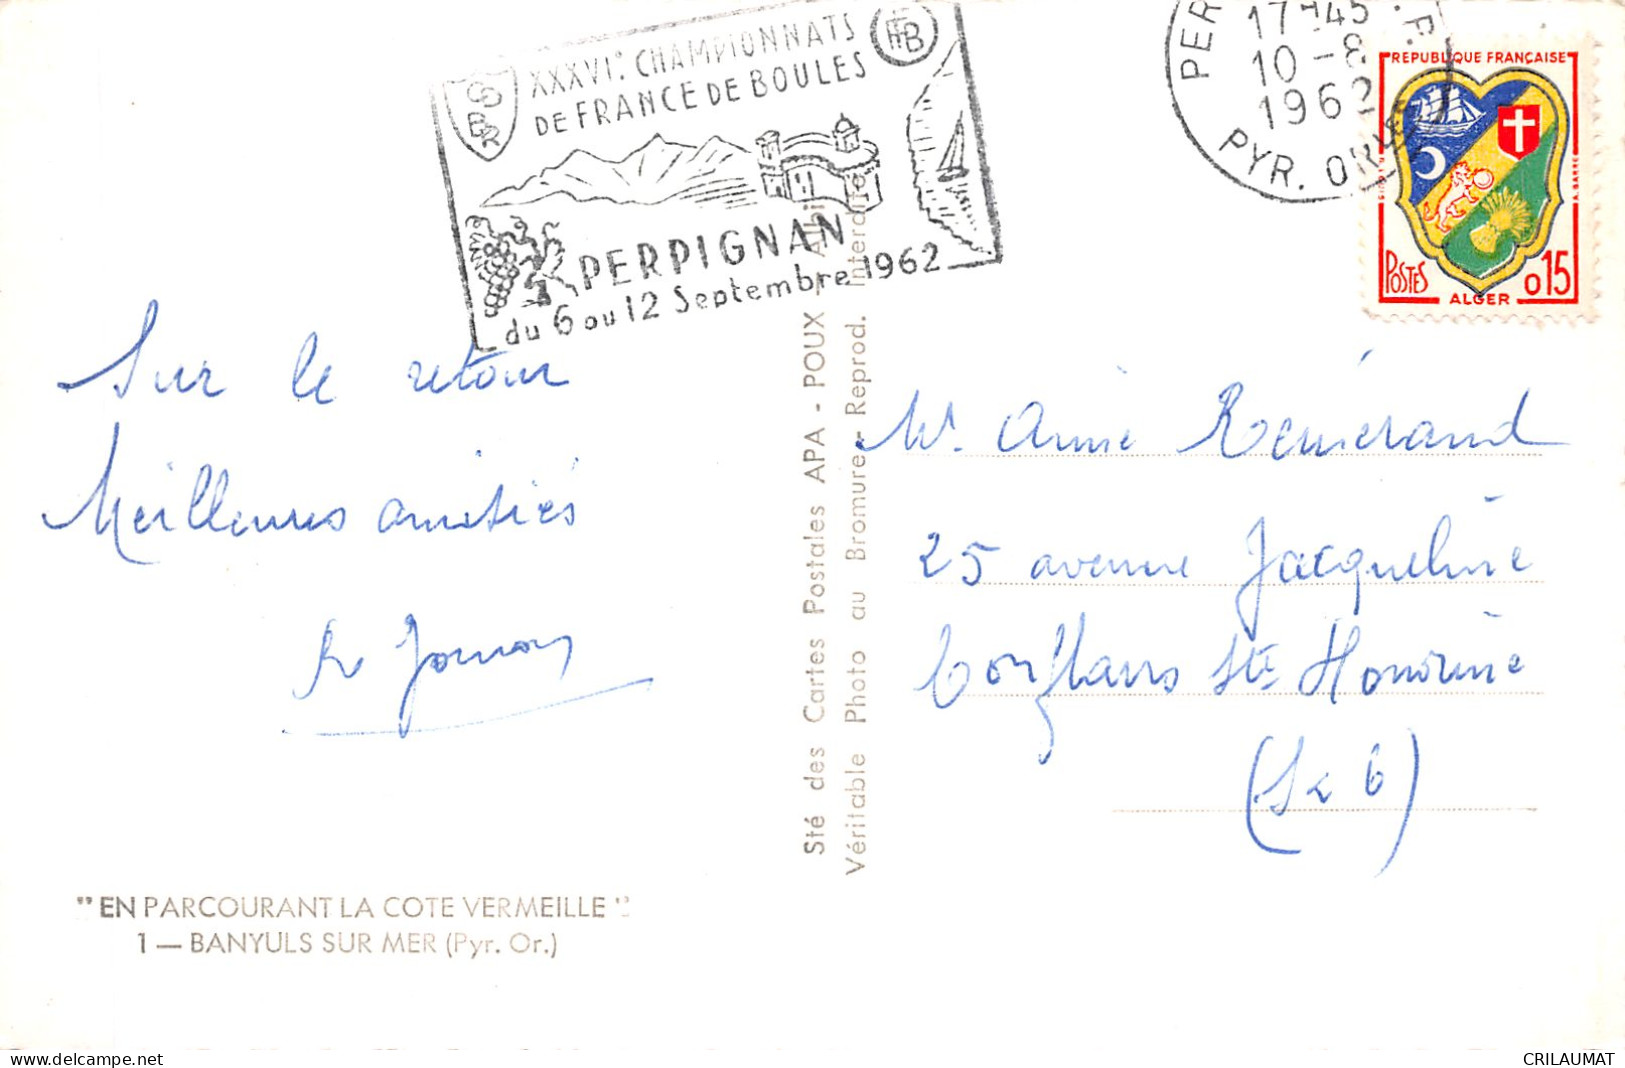 XXXVIe CHAMPIONNATS
DE FRANCE DE BOULES
FFB
PERPIGNAN
du 6 au 12 Septembre 1962
PER
17H45
10-8
1962
PYR. OR
REPUBLIQUE FRANÇAISE
POSTES
ALGER
0 15
Sur le retour
Meilleures amitiés
Mr Aimé Rémérand
25 avenue Jacqueline
Conflans Ste Honorine
(S & O)
Sté des Cartes Postales APA - POUX - Albi
Véritable Photo au Bromure - Reprod. Interdite
"EN PARCOURANT LA COTE VERMEILLE"
1 — BANYULS SUR MER (Pyr. Or.)
delcampe.net
CRILAUMAT